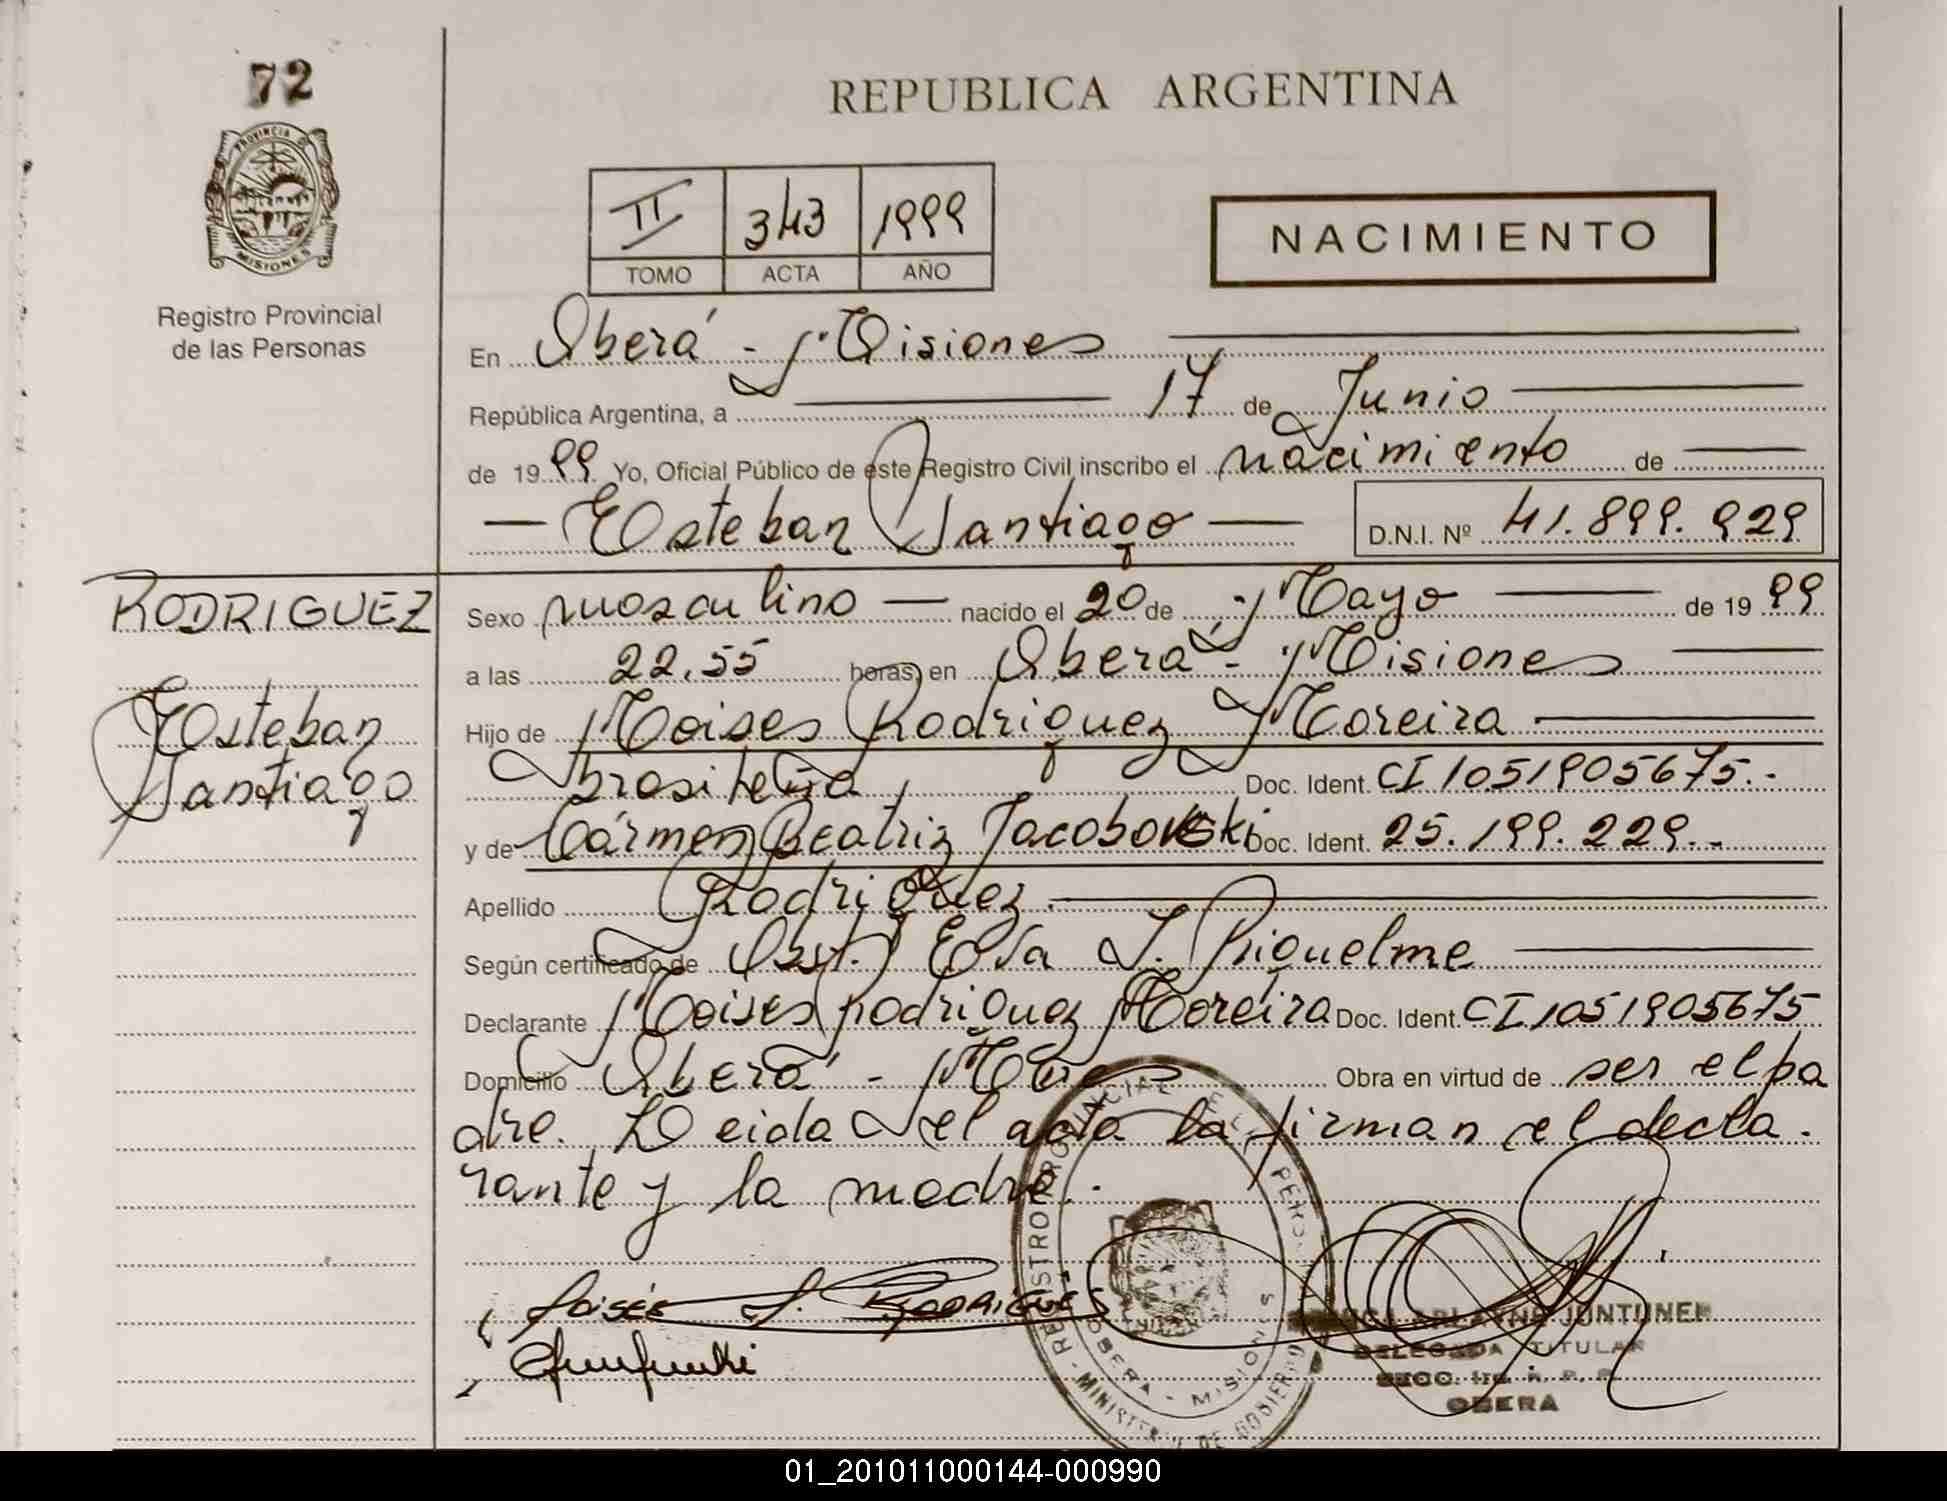 72
PROVINCIA D
MISIONES
Registro Provincial
de las Personas
REPUBLICA ARGENTINA
II 343 1999
TOMO ACTA AÑO
NACIMIENTO
En Oberá - Misiones
República Argentina, a 17 de Junio
de 1999 Yo, Oficial Público de este Registro Civil inscribo el nacimiento de
Esteban Santiago D.N.I. Nº 41.899.929
RODRIGUEZ
Esteban
Santiago
Sexo masculino nacido el 20 de Mayo de 1999
a las 22.55 horas, en Oberá - Misiones
Hijo de Moises Rodriguez Moreira
brasileña Doc. Ident. CI 1051905675.-
y de Cármen Beatriz Jacobowski Doc. Ident. 25.199.229.-
Apellido Rodriguez.
Según certificado de Obst. Elsa I. Riquelme
Declarante Moises Rodriguez Moreira Doc. Ident. CI 1051905675
Domicilio Oberá - Mnes Obra en virtud de ser el pa
dre. Leida el acta la firman el decla.
rante y la madre.-
Moisés RODRIGUES
REGISTRO PROVINCIAL DE LAS PERSONAS
OBERA - MISIONES
MINISTERIO DE GOBIERNO
ARLAYNE JUNTUNEN
DELEGADA TITULAR
SECC. R. P. P.
OBERA
01_201011000144-000990